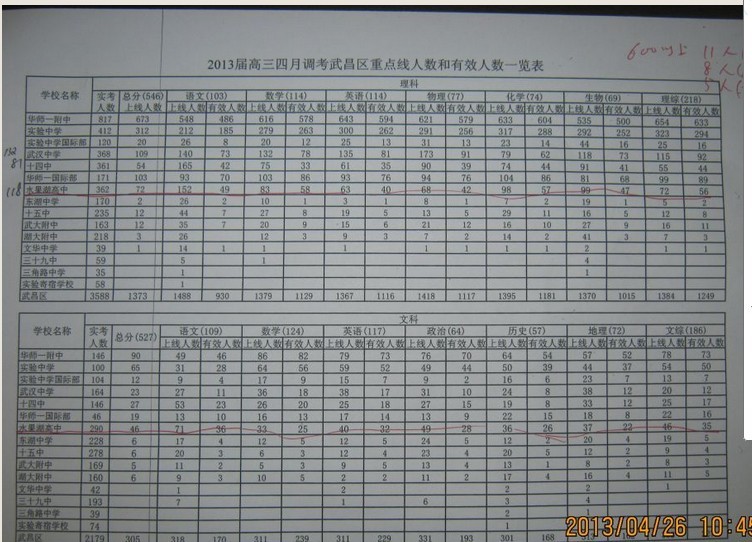 600以上 11人
8人
5人
132
81
118
2013届高三四月调考武昌区重点线人数和有效人数一览表
学校名称 实考人数 理科
总分(546) 语文(103) 数学(114) 英语(114) 物理(77) 化学(74) 生物(69) 理综(218)
上线人数 上线人数 有效人数 上线人数 有效人数 上线人数 有效人数 上线人数 有效人数 上线人数 有效人数 上线人数 有效人数 上线人数 有效人数
华师一附中 817 673 548 486 616 578 643 594 621 579 633 604 535 500 654 633
实验中学 412 312 212 185 279 263 300 262 291 256 317 288 292 252 323 294
实验中学国际部 120 20 26 8 20 12 25 13 31 13 23 14 44 16 25 16
武汉中学 368 109 140 73 132 78 135 81 173 91 79 62 118 73 115 92
十四中 361 54 165 42 75 33 61 35 90 39 74 44 91 41 55 44
华师一国际部 171 103 93 70 103 86 93 76 94 76 104 86 81 68 99 89
水果湖高中 362 72 152 49 83 58 63 40 68 42 98 57 99 47 72 56
东湖中学 170 2 26 2 10 1 3 1 8 1 7 2 19 1 5 2
十五中 235 12 44 7 27 8 19 5 13 5 29 11 16 5 12 8
武大附中 163 12 35 7 20 9 15 6 21 12 16 10 27 9 16 11
湖大附中 218 3 26 12 3 9 3 7 2 14 2 41 3 7 3
文华中学 39 1 14 1 1 1 1 1 1 1 2 1 1
三十九中 59 5 1 4
三角路中学 35 1 1
实验寄宿学校 58 1
武昌区 3588 1373 1488 930 1379 1129 1367 1116 1418 1117 1395 1181 1370 1015 1384 1249
学校名称 实考人数 文科
总分(527) 语文(109) 数学(124) 英语(117) 政治(64) 历史(57) 地理(72) 文综(186)
上线人数 有效人数 上线人数 有效人数 上线人数 有效人数 上线人数 有效人数 上线人数 有效人数 上线人数 有效人数 上线人数 有效人数
华师一附中 146 90 49 46 86 82 79 73 76 70 64 54 57 52 78 73
实验中学 100 65 31 28 64 56 59 52 49 44 50 39 44 37 54 50
实验中学国际部 104 12 9 4 17 9 15 7 9 2 16 6 23 7 13 7
武汉中学 164 23 27 11 36 18 38 17 31 10 24 8 38 12 20 12
十四中 146 27 53 23 26 20 25 18 27 15 19 8 33 12 25 17
华师一国际部 46 19 13 10 16 13 17 14 13 9 22 15 18 8 22 16
水果湖高中 290 46 71 36 33 25 40 32 49 28 36 26 37 22 46 35
东湖中学 228 6 17 4 12 5 12 5 24 5 12 2 20 4 19 5
十五中 278 6 20 3 6 3 12 4 23 4 20 5 12 2 9 4
武大附中 169 5 11 2 5 3 9 5 13 4 13 1 8 2 8 3
湖大附中 160 6 9 3 10 5 2 2 11 2 17 4 16 4 11 5
文华中学 42 1 2 2 2 1
三十九中 193 7 1 6 3 4
三角路中学 39 2
实验寄宿学校 74 1
武昌区 2179 305 318 170 311 239 311 229 331 193 301 168
2013/04/26 10:45